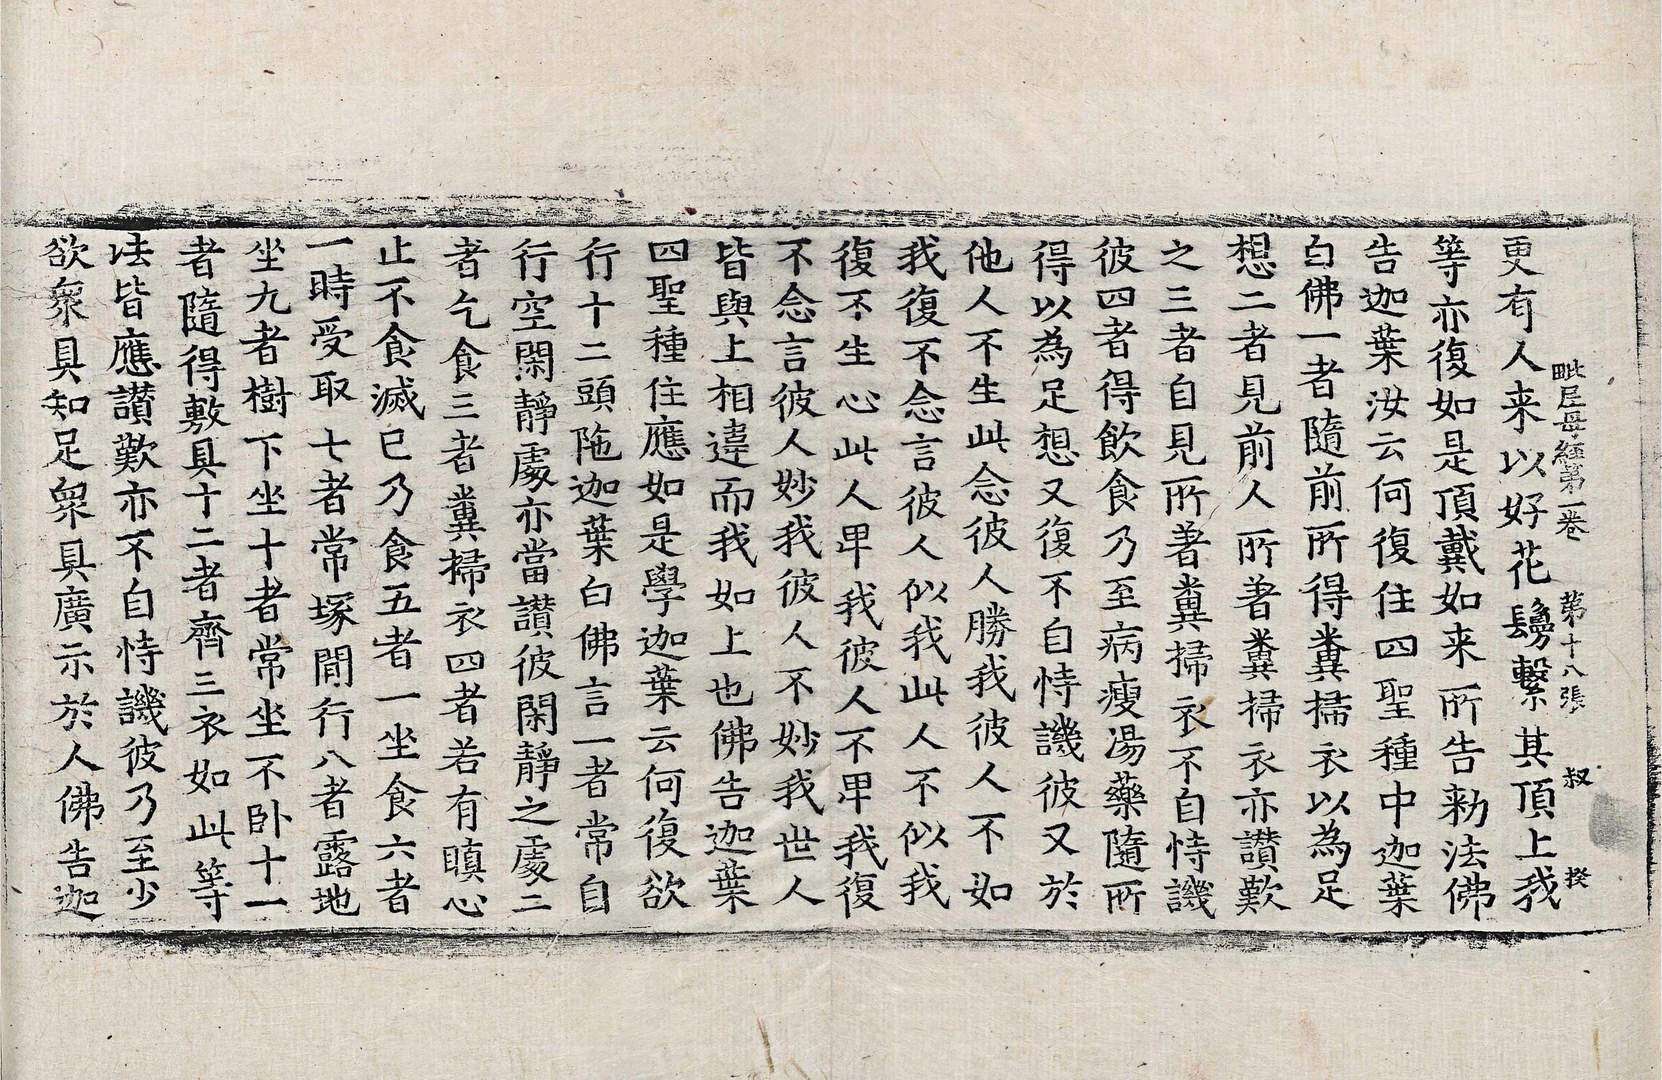 毗尼母經第一卷　第十八張　叔　揆
更有人来以好花鬘繫其頂上我
等亦復如是頂戴如来所告勑法佛
告迦葉汝云何復住四聖種中迦葉
白佛一者隨前所得糞掃衣以為足
想二者見前人所著糞掃衣亦讃歎
之三者自見所著糞掃衣不自恃譏
彼四者得飲食乃至病瘦湯藥隨所
得以為足想又復不自恃譏彼又於
他人不生此念彼人勝我彼人不如
我復不念言彼人似我此人不似我
復不生心此人卑我彼人不卑我復
不念言彼人妙我彼人不妙我世人
皆與上相違而我如上也佛告迦葉
四聖種住應如是學迦葉云何復欲
行十二頭陁迦葉白佛言一者常自
行空閑靜處亦當讃彼閑靜之處二
者乞食三者糞掃衣四者若有瞋心
止不食滅已乃食五者一坐食六者
一時受取七者常塚閒行八者露地
坐九者樹下坐十者常坐不卧十一
者隨得敷具十二者齊三衣如此等
法皆應讃歎亦不自恃譏彼乃至少
欲衆具知足衆具廣示於人佛告迦